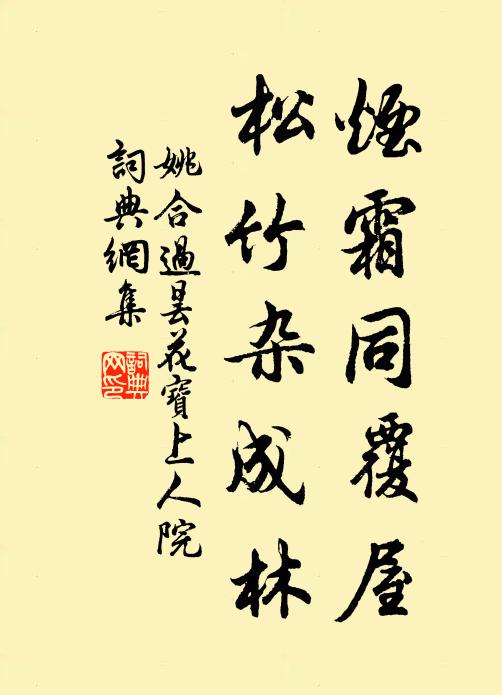 煙霜同覆屋
松竹杂成林
姚合過曇花寶上人院
詞典網集
詞典网印